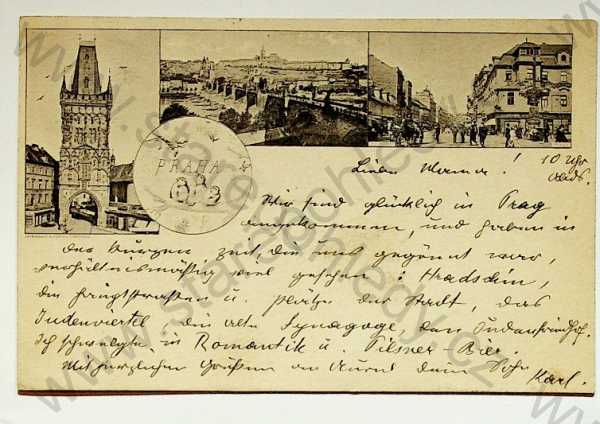 PRAHA
Liebe Mama! 10 Uhr
Abds.
Wir sind glücklich in Prag
angekommen, und haben in
der kurzen Zeit, die uns gegönnt war,
verhältnismäßig viel gesehen: Hradschin,
die Hauptstrassen u. Plätze der Stadt, das
Judenviertel, die alte Synagoge, den Judenfriedhof.
Ich schwelgte in Romantik u. Pilsner-Bier.
Mit herzlichen Grüßen an dein Sohn
Karl.